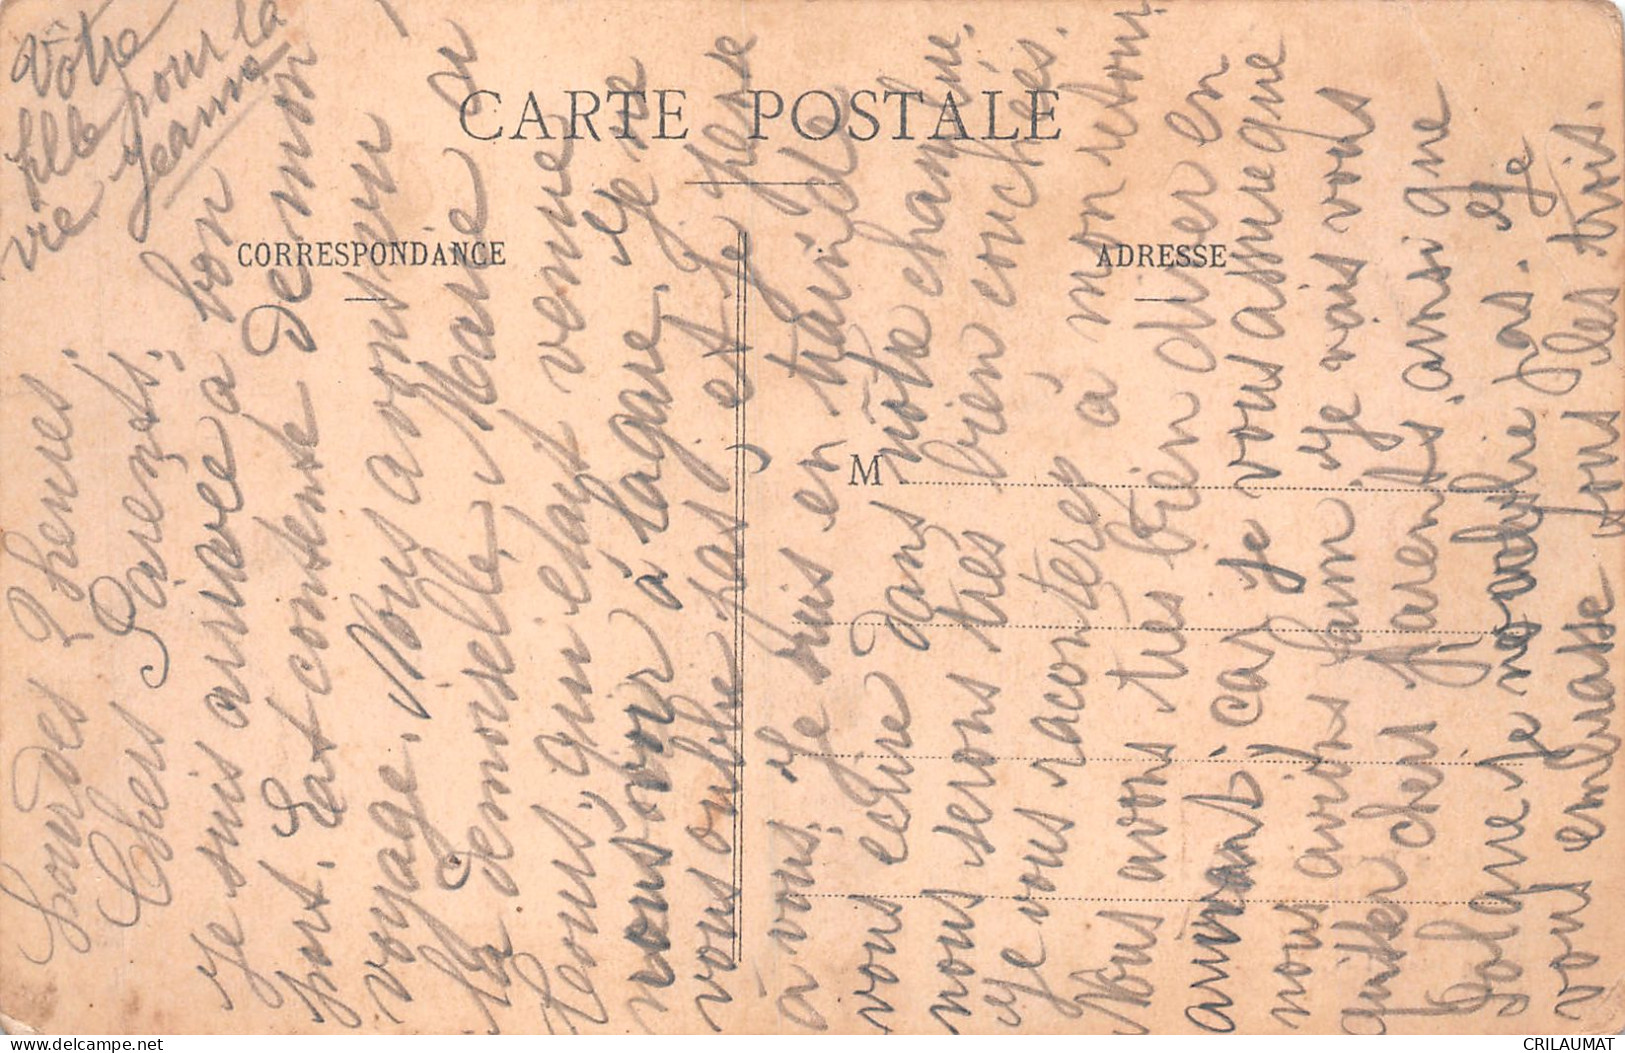 CARTE POSTALE
CORRESPONDANCE
ADRESSE
M
Lourdes 2 heures.
Chers Parents,
Je suis arrivée à bon
port. Est contente de mon
voyage. Nous avons eu
la demoiselle Marie
tous, qui étant venue
nous voir à la gare. Je ne
vous oublie pas et je pense
à vous. Je suis en train de
vous écrire dans nôtre chambre.
nous serons très bien couchés.
Je vous raconterez à mon retour
Nous avons très bien diner en
arrivant, car je vous assure que
nous avions faim. Je vais vous
quitter chers parents, ansi que
Yolane je ne oublie pas. Je
vous embrasse tous les trois.
Vôtre
fille pour la
vie Jeanne
CRILAUMAT